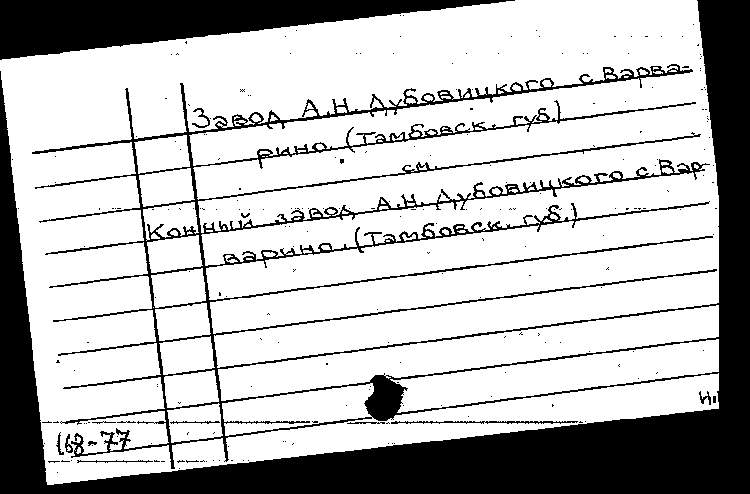 Завод А.Н. Дубовицкого с. Варва=
рино. (Тамбовск. губ.)
см.
Конный завод А.Н. Дубовицкого с. Вар
варино. (Тамбовск. губ.)
168-77